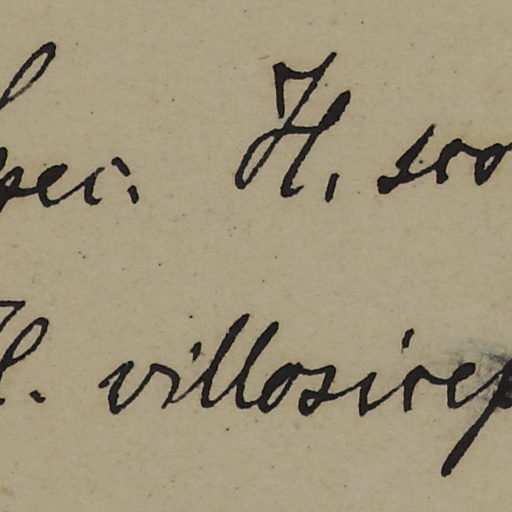 spec. H. sco
H. villosicep